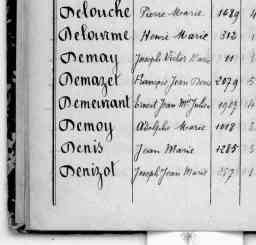 Delouche Pierre Marie 1689
Delourme Henri Marie 312
Demay Joseph Victor Marie 11
Demazet François Jean Denis 2079
Demeurant Ernest Jean Mie Julien
Demoy Adolphe Marie 1018
Denis Jean Marie 1285
Denizot Joseph Jean Marie 257